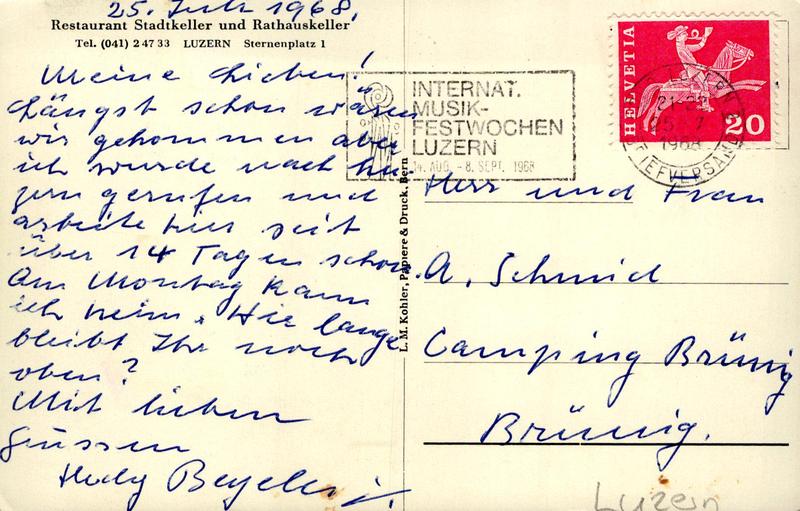 25. Juli 1968,
Restaurant Stadtkeller und Rathauskeller
Tel. (041) 2 47 33 LUZERN Sternenplatz 1
Meine Lieben!
Längst schon wären
wir gekommen aber
ich wurde nach
gerufen und
arbeite hier seit
über 14 Tagen schon.
Am Montag kann
ich heim. Wie lange
bleibt Ihr noch
oben?
Mit lieben
Grüssen
Hedy
L. M. Kohler, Papiere & Druck, Bern
INTERNAT.
MUSIK-
FESTWOCHEN
LUZERN
14. AUG. - 8. SEPT. 1968
HELVETIA
20
1968
BRIEFVERSAND
Herr und Frau
A. Schmid
Camping Brünig
Brünig.
Luzern